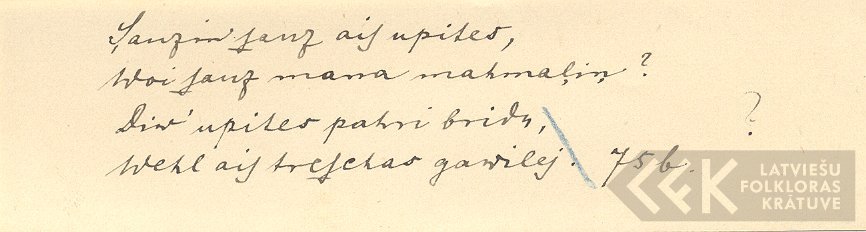 Sauzin' sauz aiſ upites,
Woi sauz mana mahmaļiņ?
Diw' upites pahri bridu,
?
Wehl aiſ treſchas gawilej. 75 b.
LATVIEŠU
FOLKLORAS
KRĀTUVE